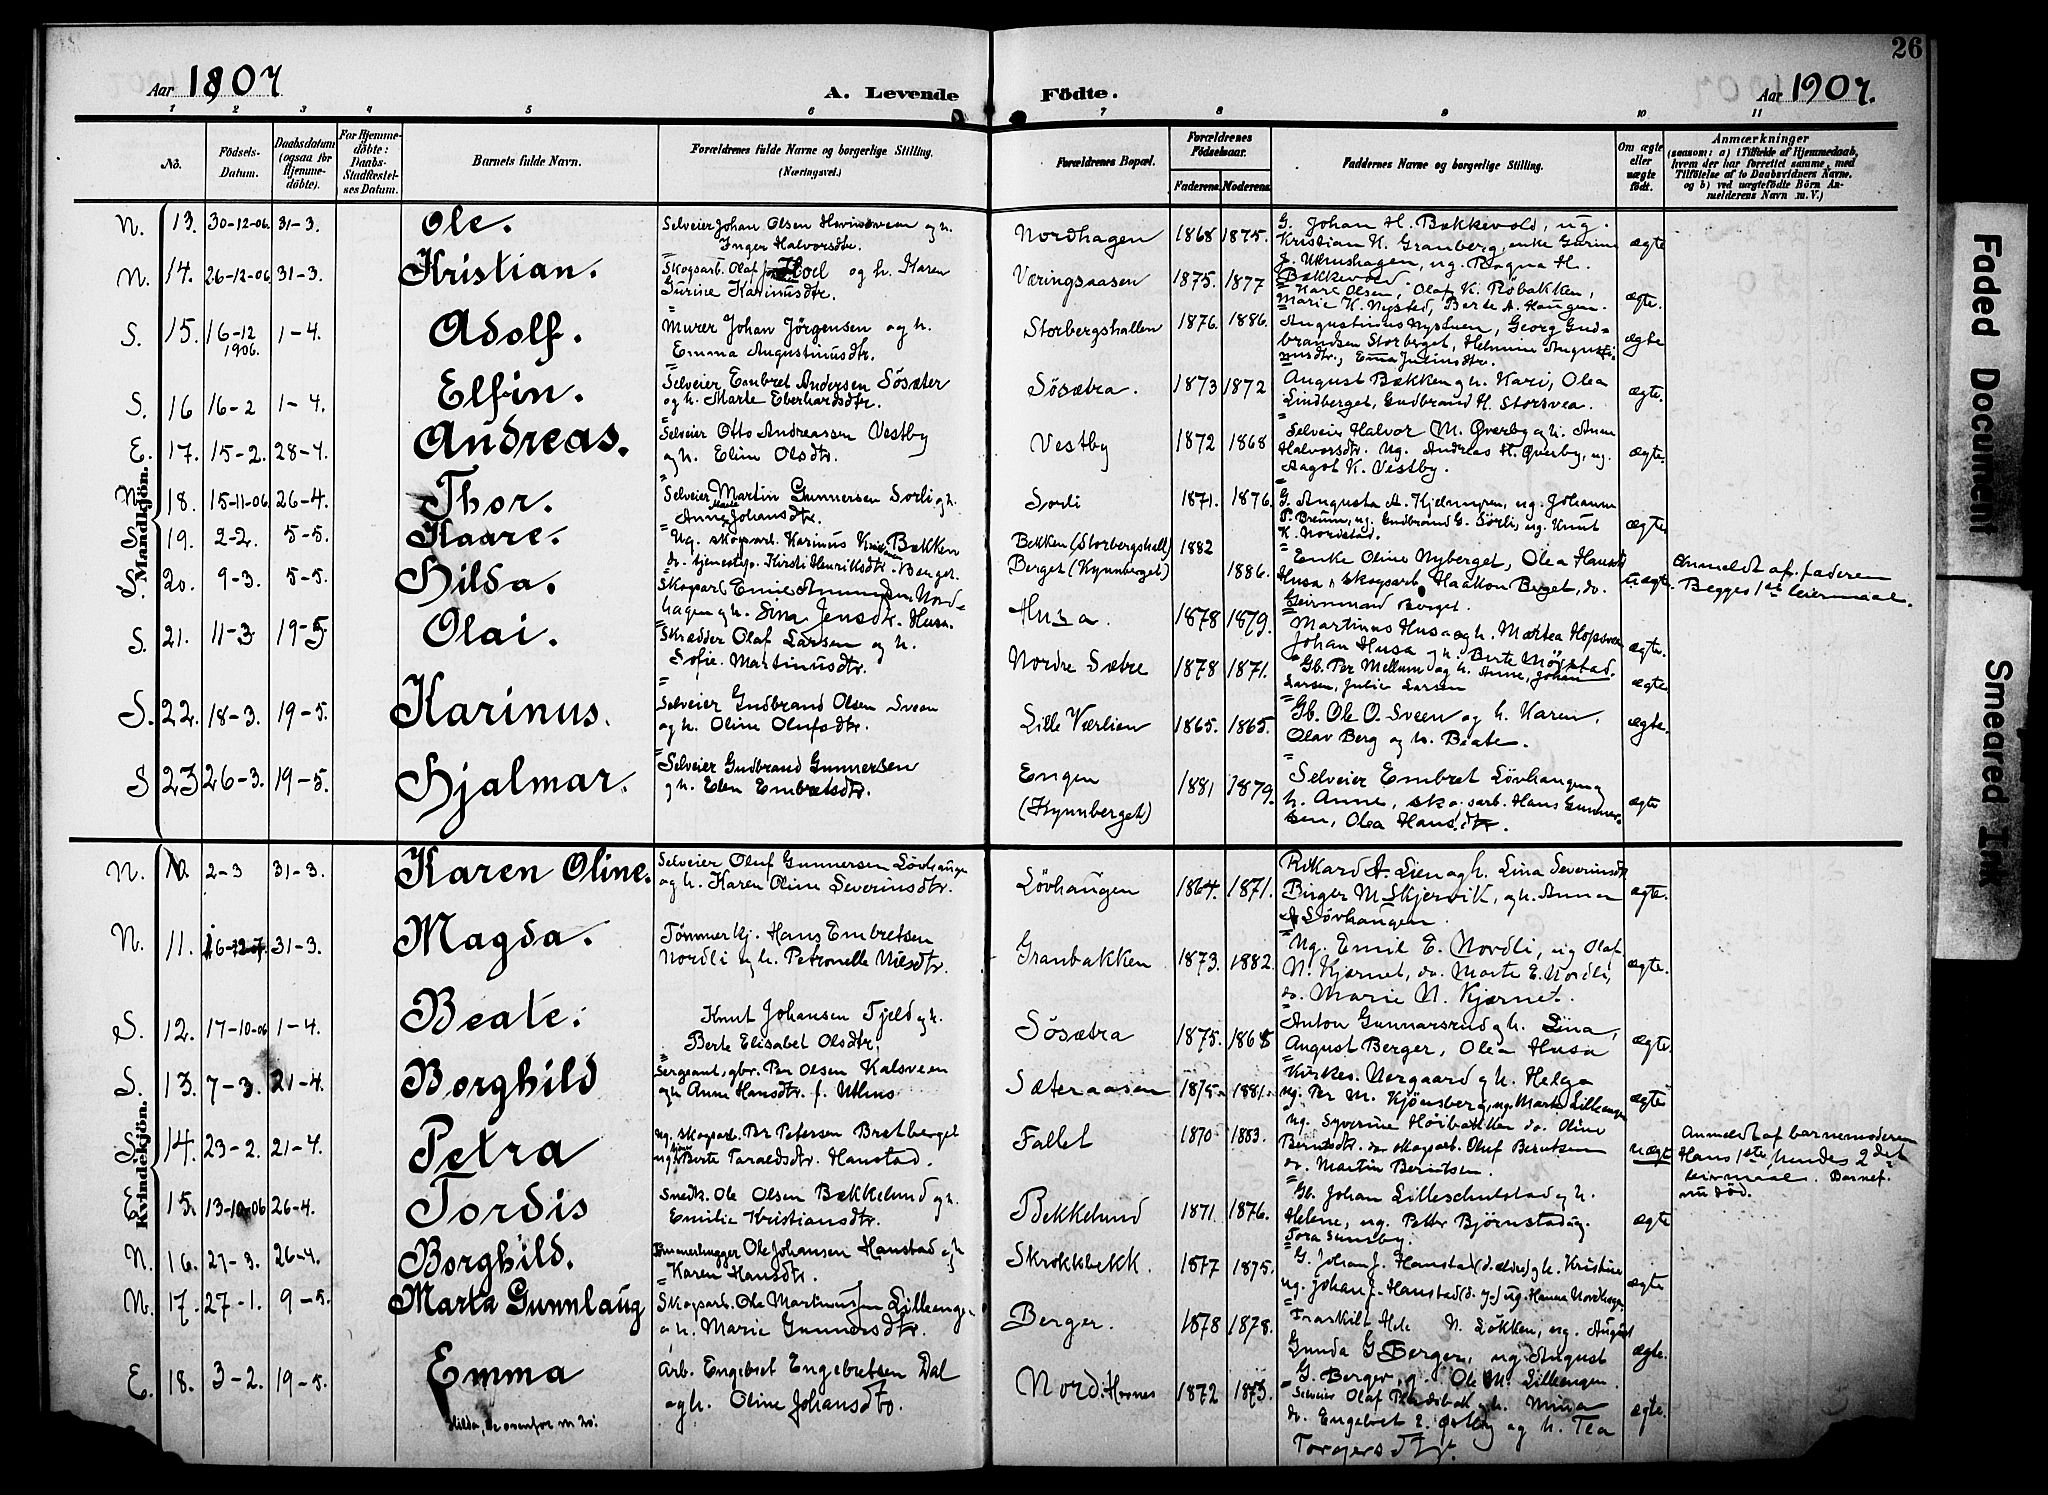 26
Aar 1907
A. Levende
Födte.
Aar 1907.
1 2 3 4 5 6 7 8 9 10 11
No.
Födsels-Datum.
Daabsdatum (ogsaa for Hjemmedöbte).
For Hjemmedöbte: Daabs-Stadfæstelses Datum.
Barnets fulde Navn.
Forældrenes fulde Navne og borgerlige Stilling.
(Næringsvei.)
Forældrenes Bopæl.
Forældrenes Födselsaar.
Faderens. Moderens.
Faddernes Navne og borgerlige Stilling.
Om ægte eller uægte födt.
Anmærkninger
(saasom: a) i Tilfælde af Hjemmedaab, hvem der har forrettet samme, med Tilföielse af to Daabsvidners Navne. og b) ved uægtefödte Börn Anmelderens Navn m. V.)
Mandkjön.
N. 13. 30-12-06. 31-3. Ole. Selveier Johan Olsen Havinsveen og h. Inger Halvorsdtr. Nordhagen 1868 1875. G. Johan H. Bækkevold, ug. Kristian K. Granberg, enke Gurine ægte
N. 14. 26-12-06. 31-3. Kristian. Skogsarb. Olaf Hoel og h. Karen Gurine Karinusdtr. Væringsaasen 1875. 1877 Karl Olsen, Olaf K. Röbakken, Marie K. Nysted, Berte A. Haugen. ægte.
S. 15. 16-12 1906. 1-4. Adolf. Murer Johan Jörgensen og h. Emma Augustinusdtr. Storbergshallen 1876. 1886. Augustinus Nystuen, Georg Gudbrandsen Storberget, Helmine Augustinusdtr., Emma Juliusdtr. ægte
S. 16 16-2 1-4. Elfin. Selveier Embret Andersen Sösæter og h. Marte Eberhardsdtr. Sösætra. 1873 1872 August Bækken og h. Kari, Olea Lindberget, Gudbrand H. Storsvea. ægte.
E. 17. 15-2. 28-4. Andreas. Selveier Otto Andreassen Vestby og h. Eline Olsdtr. Vestby 1872 1868 Selveier Halvor M. Överby og h. Anne Halvorsdtr. Ug. Andreas H. Överby, ug. Aagot K. Vestby. ægte.
N. 18. 15-11-06. 26-4. Thor. Selveier Martin Gunnersen Sorli og h. Anne Marie Johansdtr. Sorli 1871. 1876. G. Augusta A. Kjelmyren, ug. Johanne P. Breum, ug. Gudbrand G. Sörli, ug. Knut K. Nordstad. ægte
S. 19. 2-2. 5-5. Kaare. Ug. skogsarb. Karinus Bækken do. tjenestep. Kirsti Henriksdtr. Berget. Bekken (Storbergshall) Berget (Kynnberget) 1882 1886. Enke Oline Nyberget, Olea Husa, skogsarb. Haakon Berget, do. Geirmund Berget. uægte Anmeldt af faderen Begges 1ste leiermaal.
S. 20. 9-3. 5-5. Hilda. Skogsarb. Emil Nordhagen og h. Lina Jensdtr. Husa. Husa. 1878 1879. Martinus Husa og h. Martea Hopsveen Johan Husa og h. Berte Mögstad. ægte.
S. 21. 11-3. 19-5 Olai. Skrædder Olaf Larsen og h. Sofie Martinusdtr. Nordre Sætre 1878 1871. Gb. Per Mellum og h. Anne, Johan Larsen, Julie Larsen ægte.
S. 22. 18-3. 19-5. Karinus. Selveier Gudbrand Olsen Sveen og h. Oline Olufsdtr. Lille Værlien 1865. 1865. Gb. Ole O. Sveen og h. Karen. Olav Berg og h. Beate. ægte.
S 23 26-3. 19-5. Hjalmar. Selveier Gudbrand Gunnersen og h. Elen Embretsdtr. Engen (Kynnberget) 1881 1879. Selveier Embret Lövhaugen og h. Anne, skogsarb. Hans Gunnersen, Olea Hansdtr. ægte
Kvindekjön.
N. 10. 2-3 31-3. Karen Oline. Selveier Oluf Gunnersen Lövhaugen og h. Karen Oline Severinsdtr. Lövhaugen 1864. 1871. Rikard A. Lien og h. Lina Severinsdtr Birger M. Skjervik, og h. Anna Lövhaugen. ægte.
N. 11. 31-3. Magda. Tömmerkj. Hans Embretsen Nordli og h. Petronelle Nilsdtr. Granbakken 1873. 1882. Ug. Emil E. Nordli, ug Olaf N. Kjærnet, do. Marte E. Nordli, do. Marie N. Kjærnet. ægte.
S. 12. 17-10-06 1-4. Beate. Knut Johansen Fjeld og h. Berte Elisabet Olsdtr. Sösætra 1875. 1868 Anton Gunnarsrud og h. Lina, August Berger, Olea Husa ægte.
S. 13. 7-3. 21-4. Borghild Sergeant, gbr. Per Olsen Kalsveen og h. Anne Hansdtr. f. Uthus Sæteraasen 1875. 1881. Kirkes. Nergaard og h. Helga ug. Per M. Kjönsberg, ug. Marte Lilleengen ægte
S. 14. 23-2. 21-4. Petra Ug. skogsarb. Per Petersen Bretberget ug. Berte Taraldsdtr. Hanstad. Fallet 1870 1883. ug. Syverine Höibakken do. Oline Berntsdtr. do skogsarb. Oluf Berntsen do. Martin Berntsen. uægte Anmeldt af barnemoderen Hans 1ste hendes 2det leiermaal. Barnef. nu död.
E. 15. 13-10-06 26-4. Tordis Snedk. Ole Olsen Bækkelund og h. Emilie Kristiansdtr. Bekkelund 1871 1876. Gb. Johan Lilleschulstad og h. Helene, ug. Petter Björnstad ug. Tora Sundby. ægte
N. 16. 27-3. 26-4. Borghild. Tömmerhugger Ole Johansen Hanstad og h Karen Hansdtr. Skrokkbekk. 1877 1875. G. Johan J. Hanstad (d. ældre) og h. Kristine ug. Johan J. Hanstad (d. y.) ug. Hanna Nordhagen ægte
N. 17. 27-1. 9-5. Marta Gunnlaug Skogsarb. Ole Martinussen Lilleengen og h. Marie Gunnersdtr. Berger. 1878 1878. N. Løkken, ug. August Gunda G Berger, ug August G. Berger, Ole M. Lilleengen. ægte.
E. 18. 3-2. 19-5. Emma Arb. Engebret Engebretsen Dal og h. Oline Johansdtr. Nord. Hornes 1872 1873. Selveier Olaf og h. Mina do. Engebret E. Østby og h. Tea Torgersdtr. ægte.
Hilda, se ovenfor m 20.
Faded Document
Smeared Ink